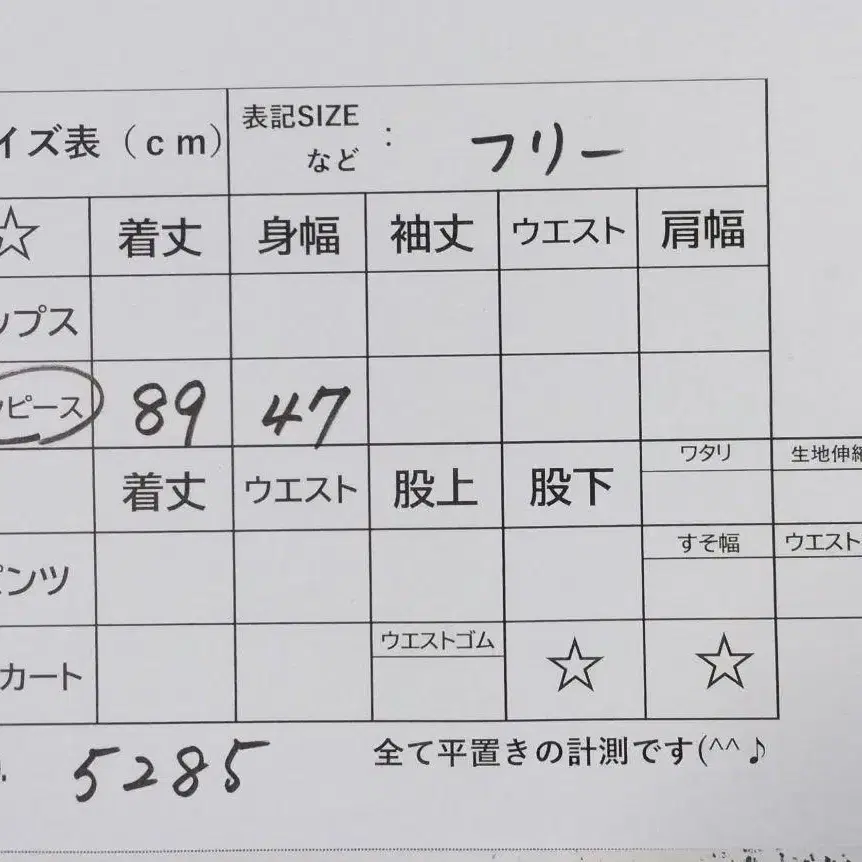 イズ表（cm） 表記SIZE など : フリー
☆ 着丈 身幅 袖丈 ウエスト 肩幅
ップス
ピース 89 47
着丈 ウエスト 股上 股下 ワタリ 生地伸縮
パンツ すそ幅 ウエスト
カート ウエストゴム ☆ ☆
5285 全て平置きの計測です(^^♪